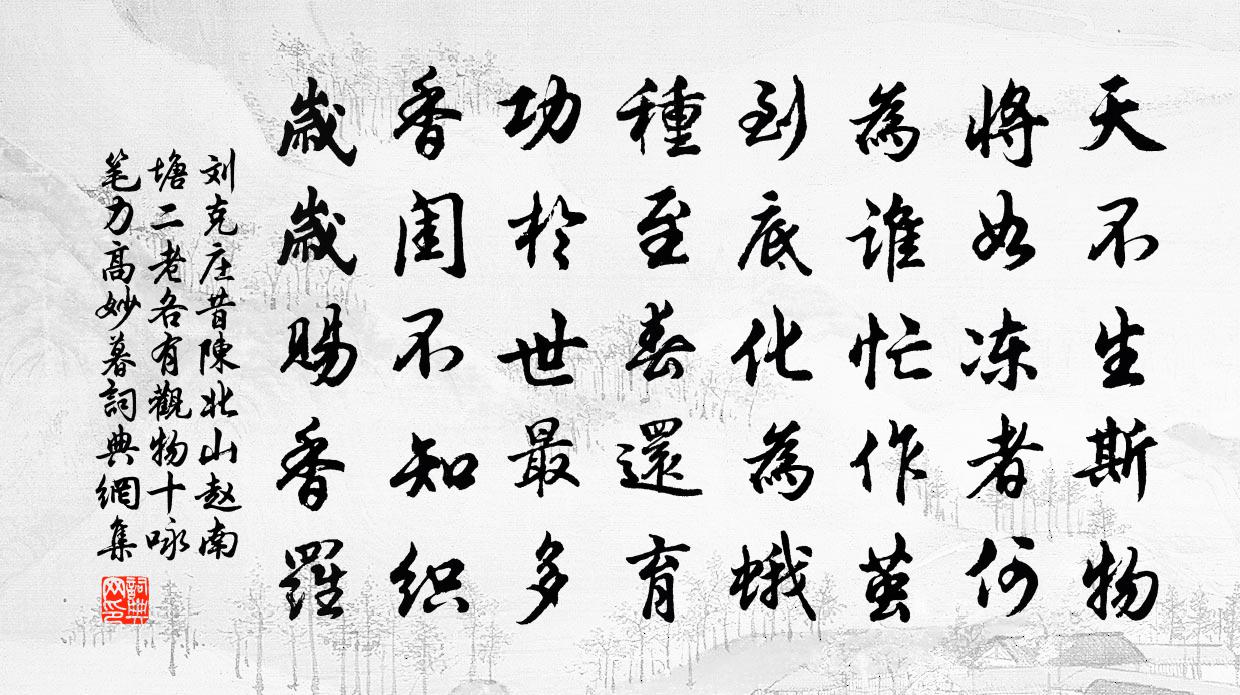 天不生斯物
將如冻者何
為谁忙作茧
到底化為蛾
種至春還育
功於世最多
香闺不知织
歲歲賜香羅
刘克庄昔陳北山赵南
塘二老各有觀物十咏
笔力高妙暮詞典網集
詞典网印